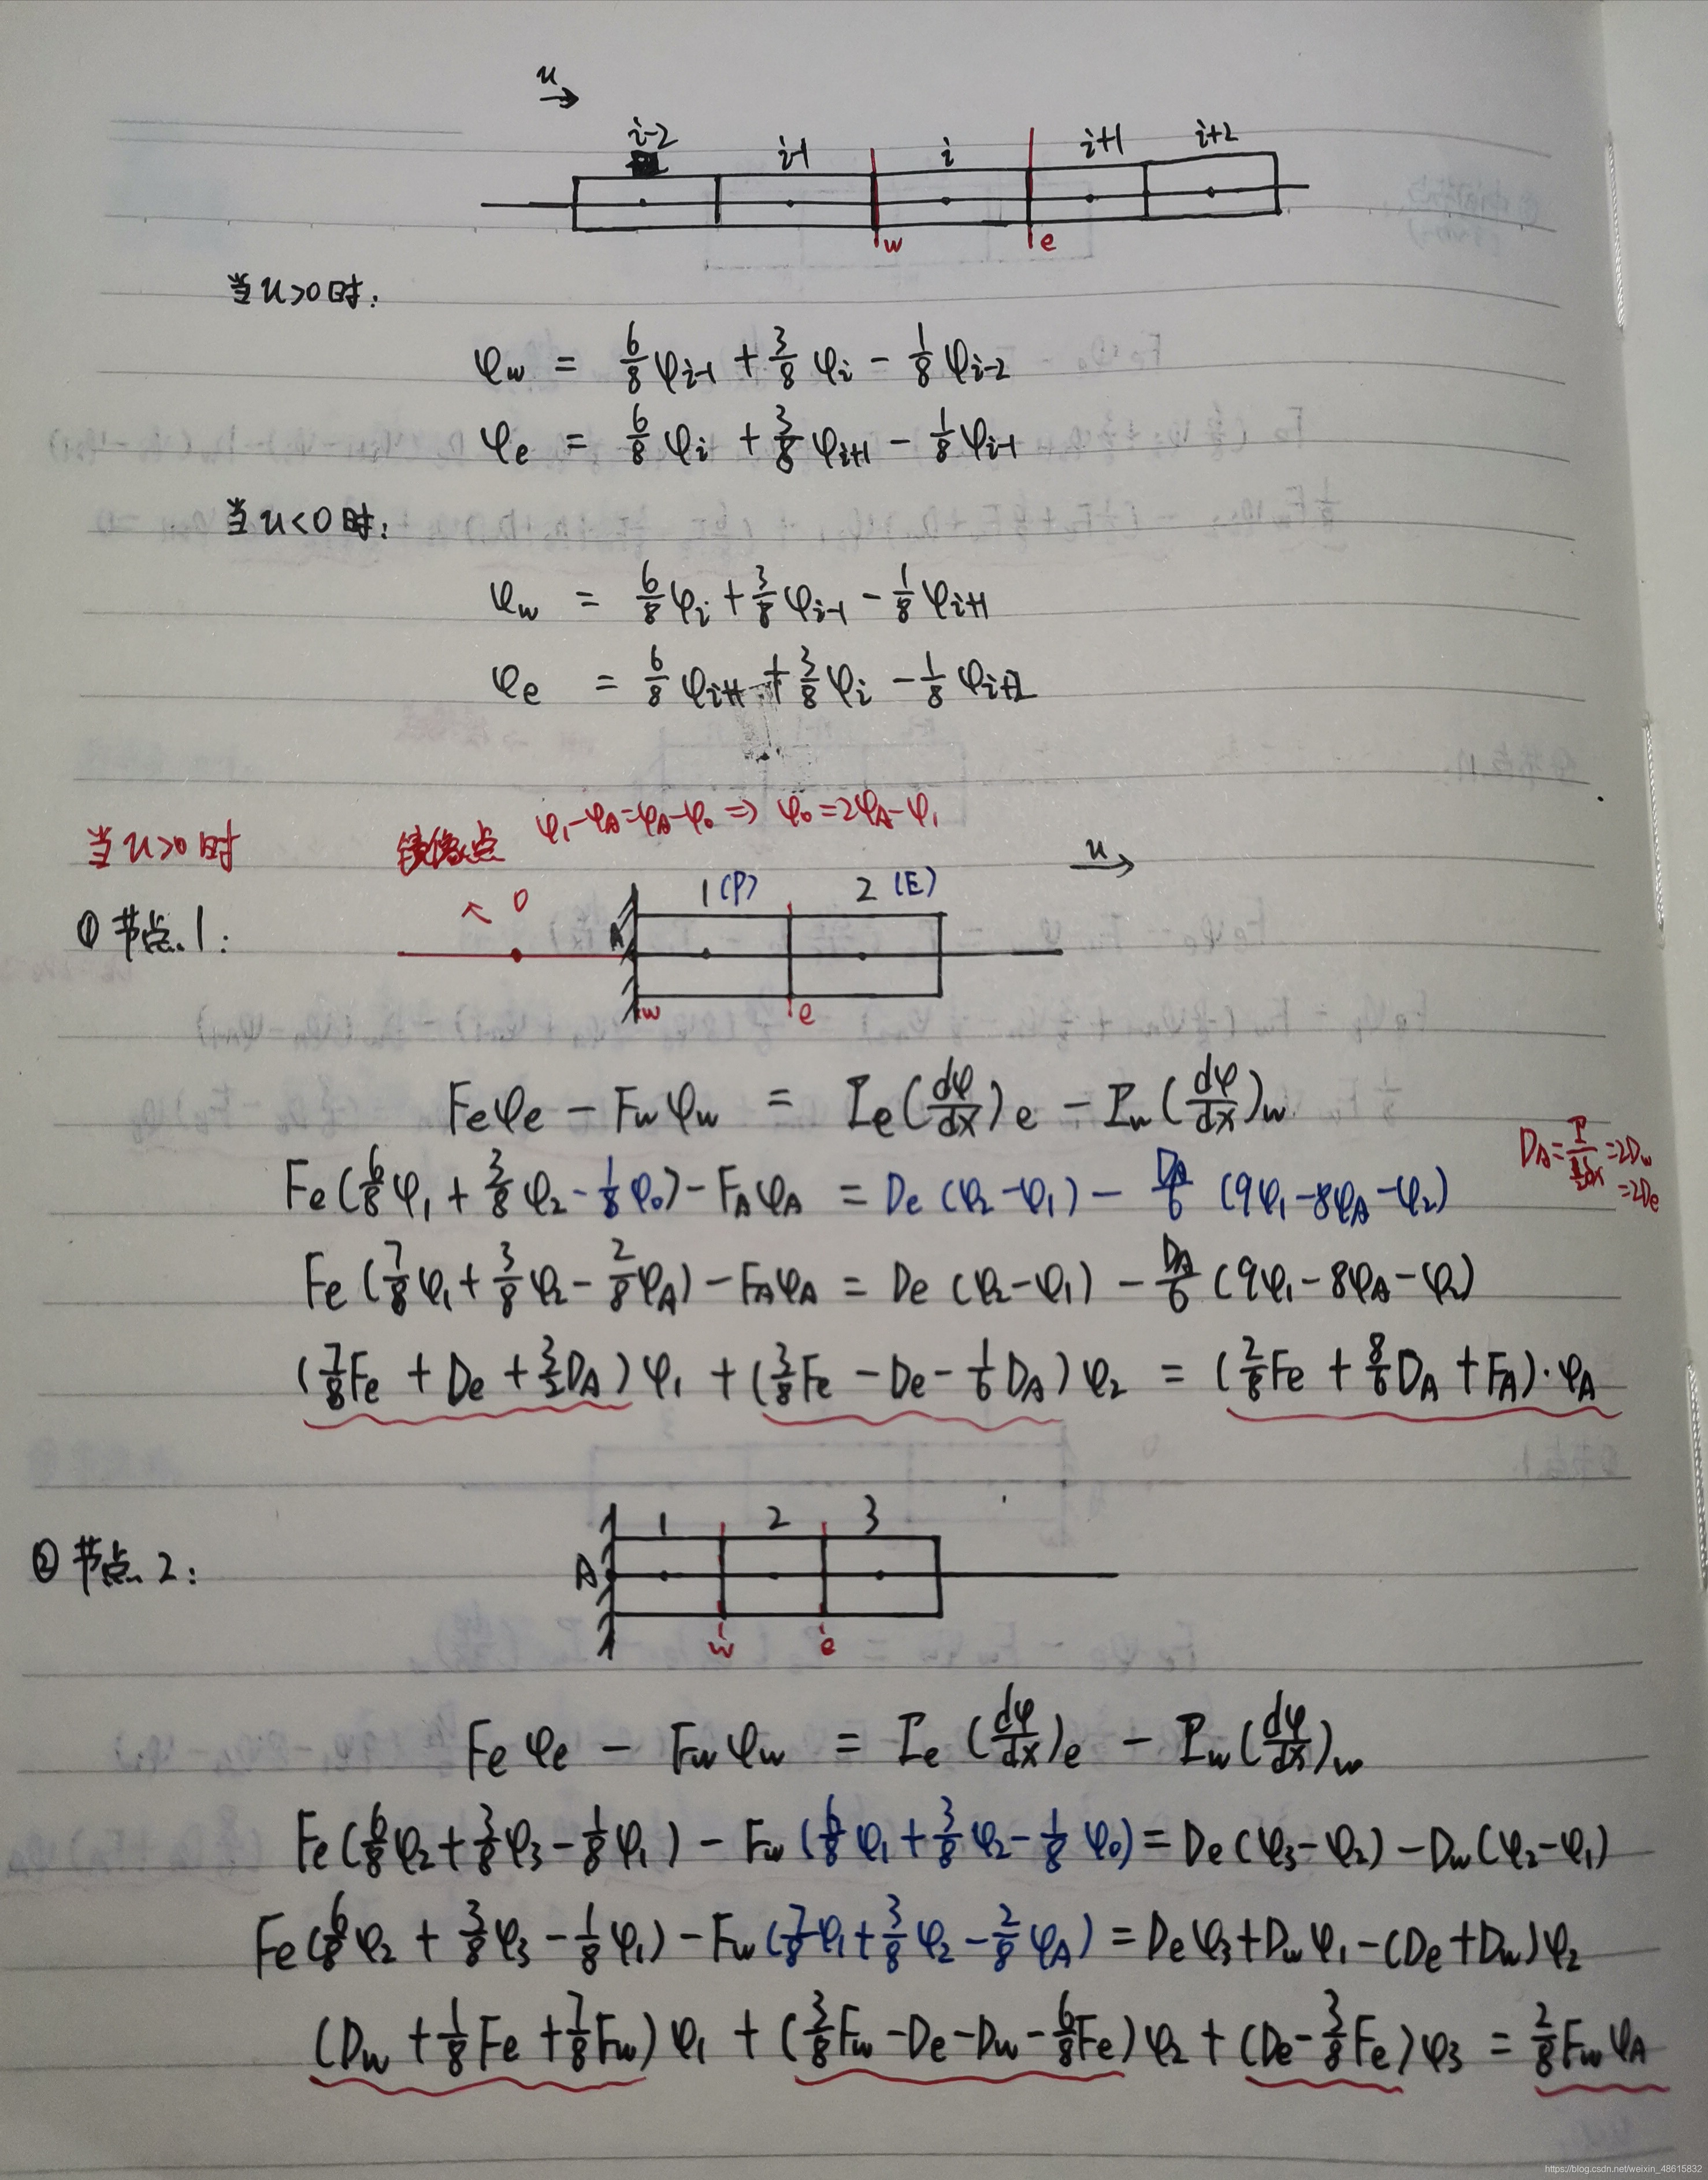 u →
i-2 i-1 i i+1 i+2
w e
当u>0时:
φw = 6/8 φi-1 + 3/8 φi - 1/8 φi-2
φe = 6/8 φi + 3/8 φi+1 - 1/8 φi-1
当u<0时:
φw = 6/8 φi + 3/8 φi-1 - 1/8 φi+1
φe = 6/8 φi+1 + 3/8 φi - 1/8 φi+2
当u>0时 镜像点 φ1-φA=φA-φ0 ⇒ φ0=2φA-φ1
u →
① 节点1: 0 A 1(P) 2(E)
w e
Feφe - Fwφw = Γe(dφ/dx)e - Γw(dφ/dx)w
DA = Γ/(½δx) = 2Dw
= 2De
Fe(6/8 φ1 + 3/8 φ2 - 1/8 φ0) - FAφA = De(φ2-φ1) - DA/6 (9φ1-8φA-φ2)
Fe(7/8 φ1 + 3/8 φ2 - 2/8 φA) - FAφA = De(φ2-φ1) - DA/6 (9φ1-8φA-φ2)
(7/8 Fe + De + 3/2 DA)φ1 + (3/8 Fe - De - 1/6 DA)φ2 = (2/8 Fe + 8/6 DA + FA)·φA
② 节点2: A 1 2 3
w e
Feφe - Fwφw = Γe(dφ/dx)e - Γw(dφ/dx)w
Fe(6/8 φ2 + 3/8 φ3 - 1/8 φ1) - Fw(6/8 φ1 + 3/8 φ2 - 1/8 φ0) = De(φ3-φ2) - Dw(φ2-φ1)
Fe(6/8 φ2 + 3/8 φ3 - 1/8 φ1) - Fw(7/8 φ1 + 3/8 φ2 - 2/8 φA) = Deφ3+Dwφ1-(De+Dw)φ2
(Dw + 1/8 Fe + 7/8 Fw)φ1 + (3/8 Fw - De - Dw - 6/8 Fe)φ2 + (De - 3/8 Fe)φ3 = 2/8 FwφA
https://blog.csdn.net/weixin_48615832